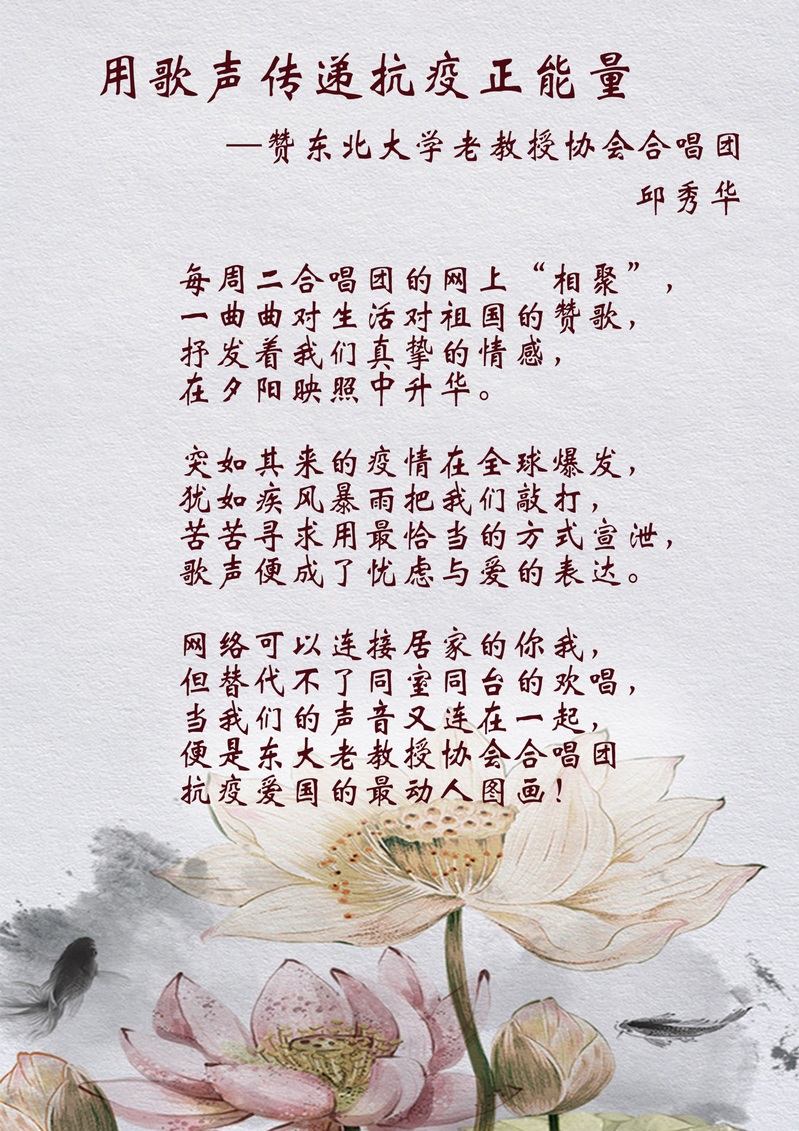 用歌声传递抗疫正能量
—赞东北大学老教授协会合唱团
邱秀华
每周二合唱团的网上“相聚”，
一曲曲对生活对祖国的赞歌，
抒发着我们真挚的情感，
在夕阳映照中升华。
突如其来的疫情在全球爆发，
犹如疾风暴雨把我们敲打，
苦苦寻求用最恰当的方式宣泄，
歌声便成了忧虑与爱的表达。
网络可以连接居家的你我，
但替代不了同室同台的欢唱，
当我们的声音又连在一起，
便是东大老教授协会合唱团
抗疫爱国的最动人图画！